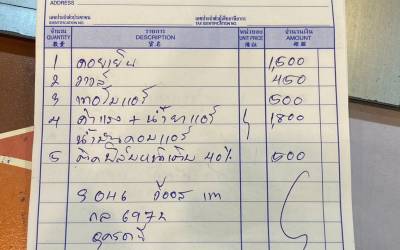 ADDRESS
เลขประจำตัวประชาชน
IDENTIFICATION NO.
เลขประจำตัวผู้เสียภาษีอากร
TAX IDENTIFICATION NO.
จำนวน รายการ หน่วยละ จำนวนเงิน
QUANTITY DESCRIPTION UNIT PRICE AMOUNT
數量 貨名
1 คอยเย็น 1,500
2 วาล์ว 450
3 เทอร์โมแอร์ 500
4 ค่าแรง + น้ำยาแอร์ 1,800
น้ำมันคอมแอร์
5 ติดฟิล์มเดิม 40% 500
9046 วีออส เทา
กล 6972
อุดรธานี